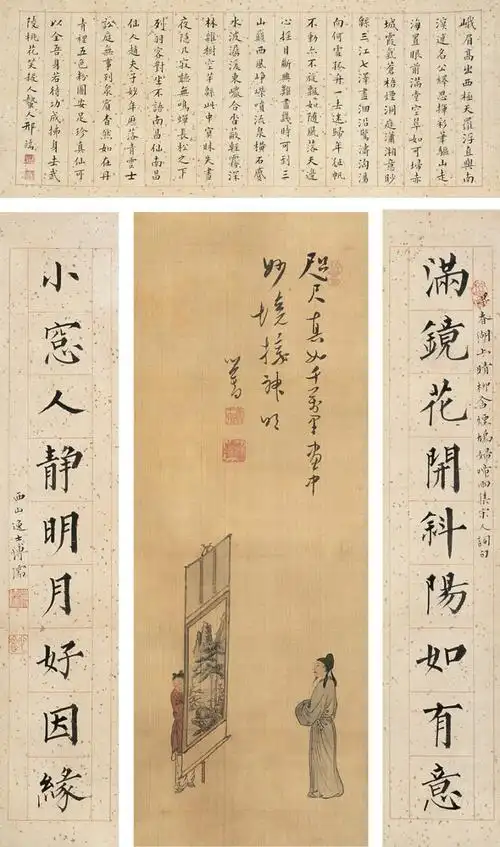 峨眉高出西極天羅浮直與南
溟連名公繹思揮彩筆驅山走
海置眼前滿堂空翠如可掃赤
城霞氣蒼梧煙洞庭瀟湘意眇
緜三江七澤畫洄沿驚濤洶湧
向何處孤舟一去迷歸年征帆
不動亦不旋飄如隨風落天邊
心搖目斷興難盡幾時可到三
山巔西風崢嶸噴流泉橫石蹙
水波潺湲東崖合沓蔽輕霧深
林雜樹空芊緜此中冥昧失晝
夜隱几寂聽無鳴蟬長松之下
列羽客對坐不語南昌仙南昌
仙人趙夫子妙年歷落青雲士
訟庭無事列衆賓杳然如在丹
青裡五色粉圖安足珍真仙可
以全吾身若待功成拂身士武
陵桃花笑殺人蟄人邢端
春湖上晴柳含煙鳩婦喚雨集宋人詞句
滿鏡花開斜陽如有意
咫尺真如千萬里畫中
妙境接神明
心畬
小窓人靜明月好因緣
西山逸士溥儒